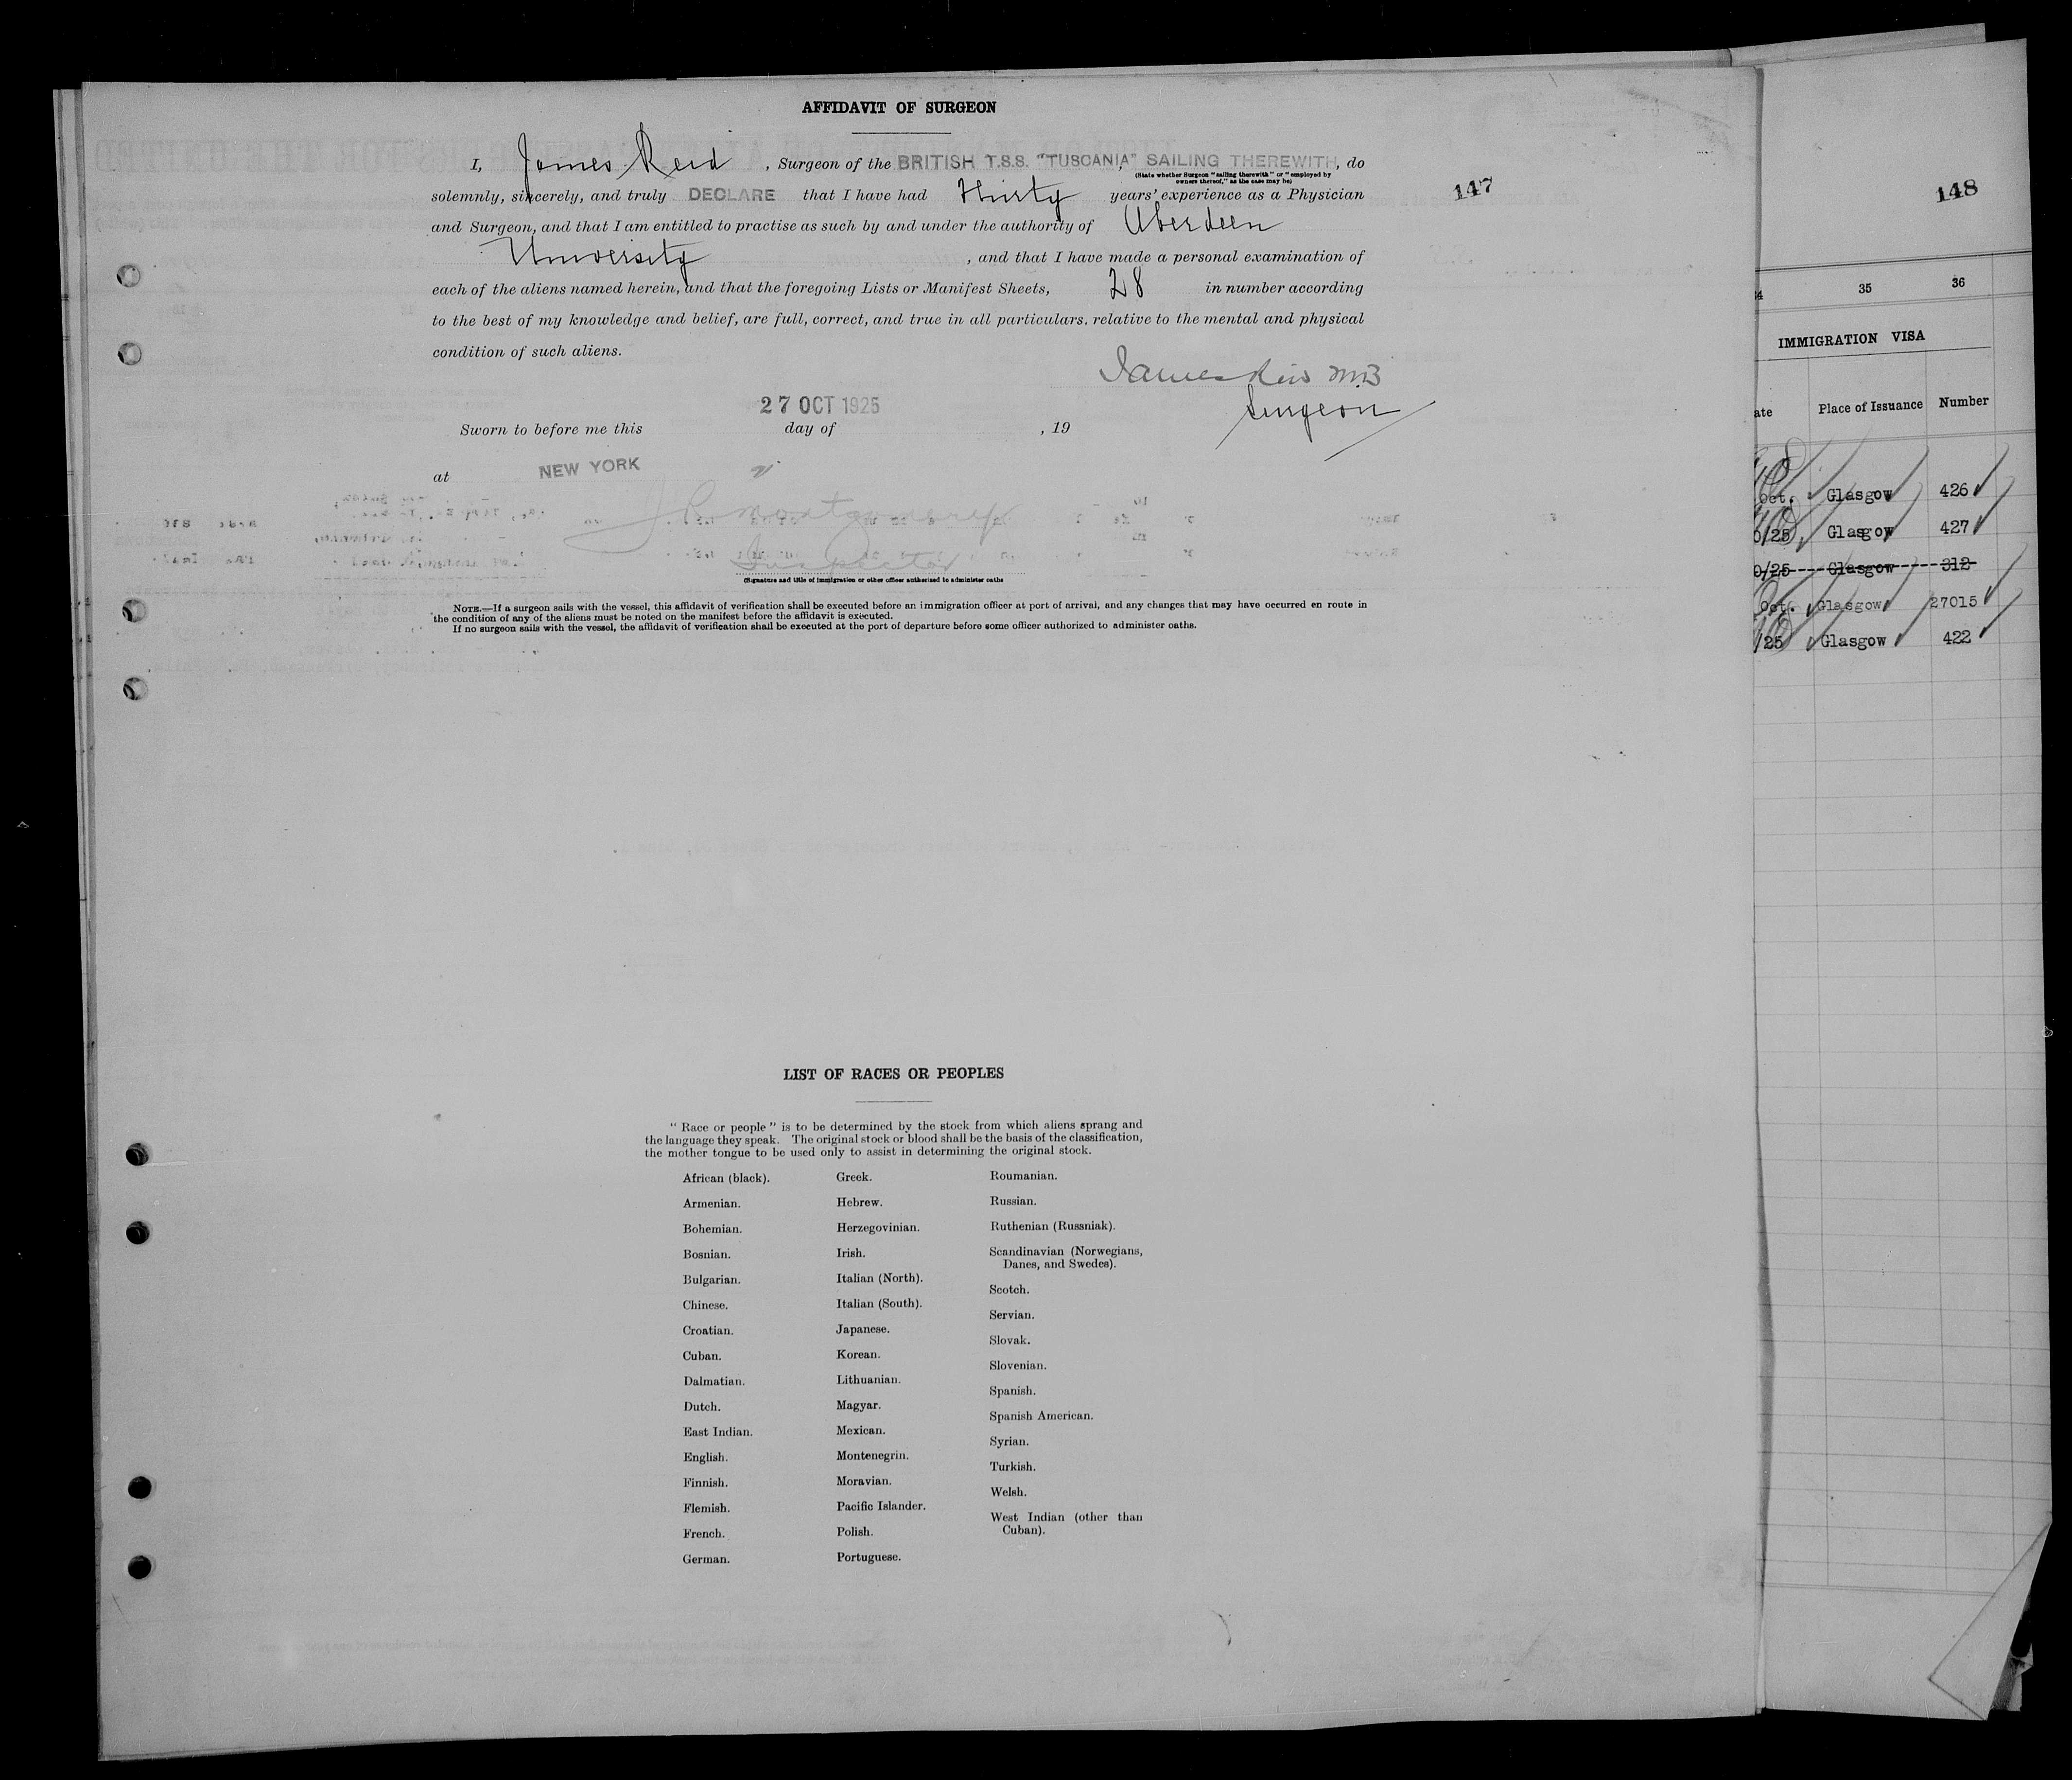 AFFIDAVIT OF SURGEON
I, James Reid, Surgeon of the BRITISH T.S.S. "TUSCANIA," SAILING THEREWITH, do
(State whether Surgeon "sailing therewith" or "employed by
owners thereof," as the case may be)
solemnly, sincerely, and truly DECLARE that I have had Thirty years' experience as a Physician
and Surgeon, and that I am entitled to practise as such by and under the authority of Aberdeen
University, and that I have made a personal examination of
each of the aliens named herein, and that the foregoing Lists or Manifest Sheets, 28 in number according
to the best of my knowledge and belief, are full, correct, and true in all particulars. relative to the mental and physical
condition of such aliens.
James Reid M.B
Surgeon
27 OCT 1925
Sworn to before me this day of , 19
at NEW YORK
Montgomery
Inspector
(Signature and title of immigration or other officer authorized to administer oaths
NOTE.—If a surgeon sails with the vessel, this affidavit of verification shall be executed before an immigration officer at port of arrival, and any changes that may have occurred en route in
the condition of any of the aliens must be noted on the manifest before the affidavit is executed.
If no surgeon sails with the vessel, the affidavit of verification shall be executed at the port of departure before some officer authorized to administer oaths.
LIST OF RACES OR PEOPLES
" Race or people " is to be determined by the stock from which aliens sprang and
the language they speak. The original stock or blood shall be the basis of the classification,
the mother tongue to be used only to assist in determining the original stock.
African (black).
Armenian.
Bohemian.
Bosnian.
Bulgarian.
Chinese.
Croatian.
Cuban.
Dalmatian.
Dutch.
East Indian.
English.
Finnish.
Flemish.
French.
German.
Greek.
Hebrew.
Herzegovinian.
Irish.
Italian (North).
Italian (South).
Japanese.
Korean.
Lithuanian.
Magyar.
Mexican.
Montenegrin.
Moravian.
Pacific Islander.
Polish.
Portuguese.
Roumanian.
Russian.
Ruthenian (Russniak).
Scandinavian (Norwegians,
Danes, and Swedes).
Scotch.
Servian.
Slovak.
Slovenian.
Spanish.
Spanish American.
Syrian.
Turkish.
Welsh.
West Indian (other than
Cuban).
147
148
35 36
IMMIGRATION VISA
Place of Issuance Number
Oct. Glasgow 426
/25 Glasgow 427
/25 Glasgow 312
Oct. Glasgow 27015
/25 Glasgow 422